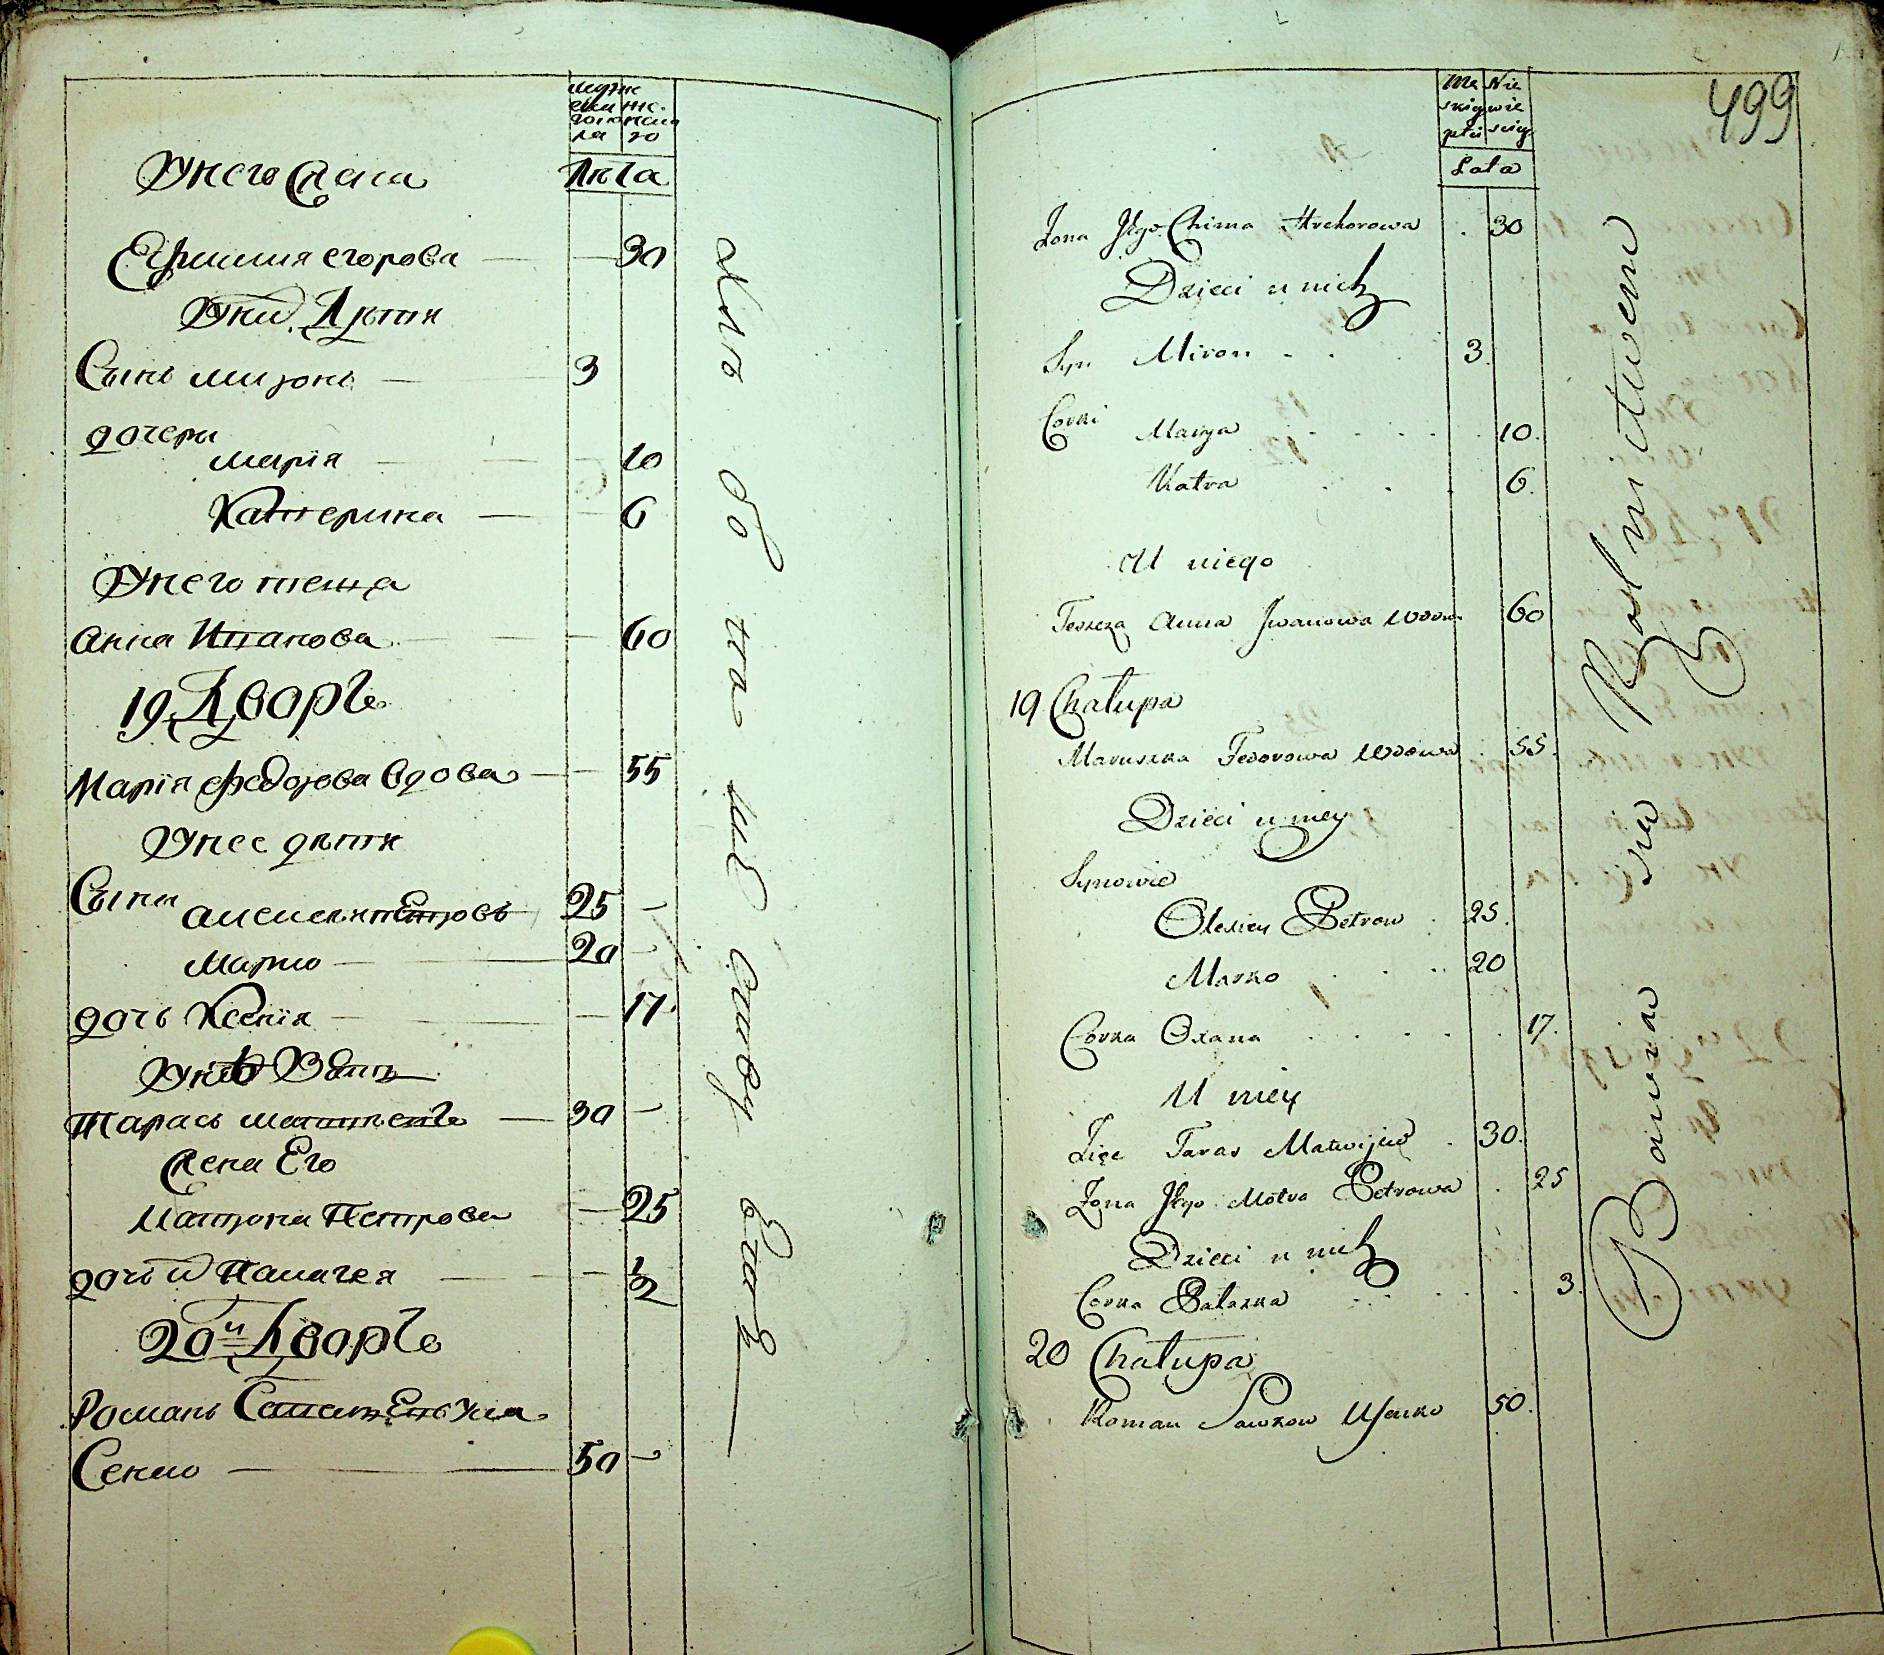 мужеска
го пола
женска
го
Лѣта
У него жена
Ефимия егорова 30
У них дѣти
Сынъ миронъ 3
дочери
мария 10
Катерина 6
У него теща
Анна Иванова 60
19 Дворъ
Марїя федорова вдова 55
У нее дѣти
Сыны Алексей Петровъ 25
марко 20
дочь Ксенїя 17
У нее Зять
Тарасъ матвеевъ 30
Жена Его
Матрона Петрова 25
дочь и Палагея 1/2
20й Дворъ
Романъ
Сенко 50
499
Lata
Zona Jego Chima Hrehorowa 30
Dzieci u nich
Syn Miron 3
Corki Marya 10
Katra 6
U niego
Teszcza Anna Jwanowa wdowa 60
19 Chałupa
Maruszka Fedorowa wdowa 55
Dzieci u niey
Synowie
Olexiey Petrow 25
Marko 20
Corka Oxana 17
U niey
Zięc Taras Matwijew 30
Zona Jego Motra Petrowa 25
Dzieci u nich
Corka Palazka 3
20 Chałupa
Roman Sawkow Usenko 50
Bawią się Rolnictwem